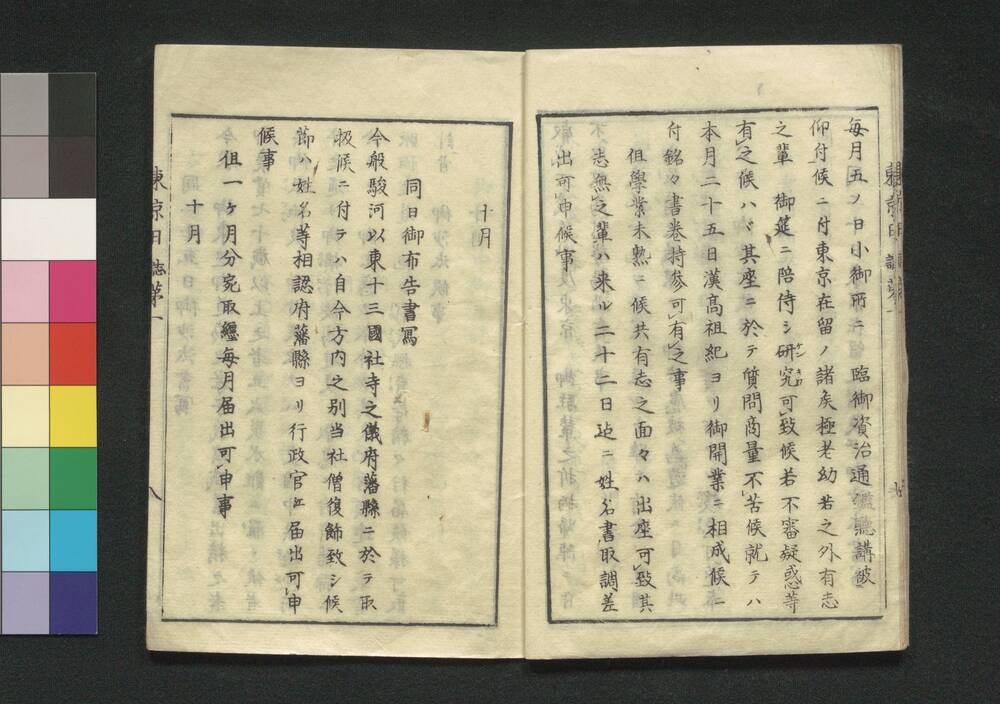 毎月五ノ日小御所ニ　臨御資治通鑑聴講被
仰付候ニ付東京在留ノ諸矦極老幼若之外有志
之輩　御筵ニ陪侍シ研究可致候若不審疑惑等
有之候ハヾ其座ニ於テ質問商量不苦候就テハ
本月二十五日漢高祖紀ヨリ御開業ニ相成候ニ
付銘々書巻持参可有之事
但學業未熟ニ候共有志之面々ハ出座可致其
志無之輩ハ来ル二十二日迠ニ姓名書取調差
出可申候事
十月
同日御布告書寫
今般駿河以東十三國社寺之儀府藩縣ニ於テ取
扱候ニ付テハ自今方内之別当社僧復飾致シ候
節ハ姓名等相認府藩縣ヨリ行政官江届出可申
候事
但一ヶ月分宛取纏毎月届出可申事
十月
東京日誌第一
八